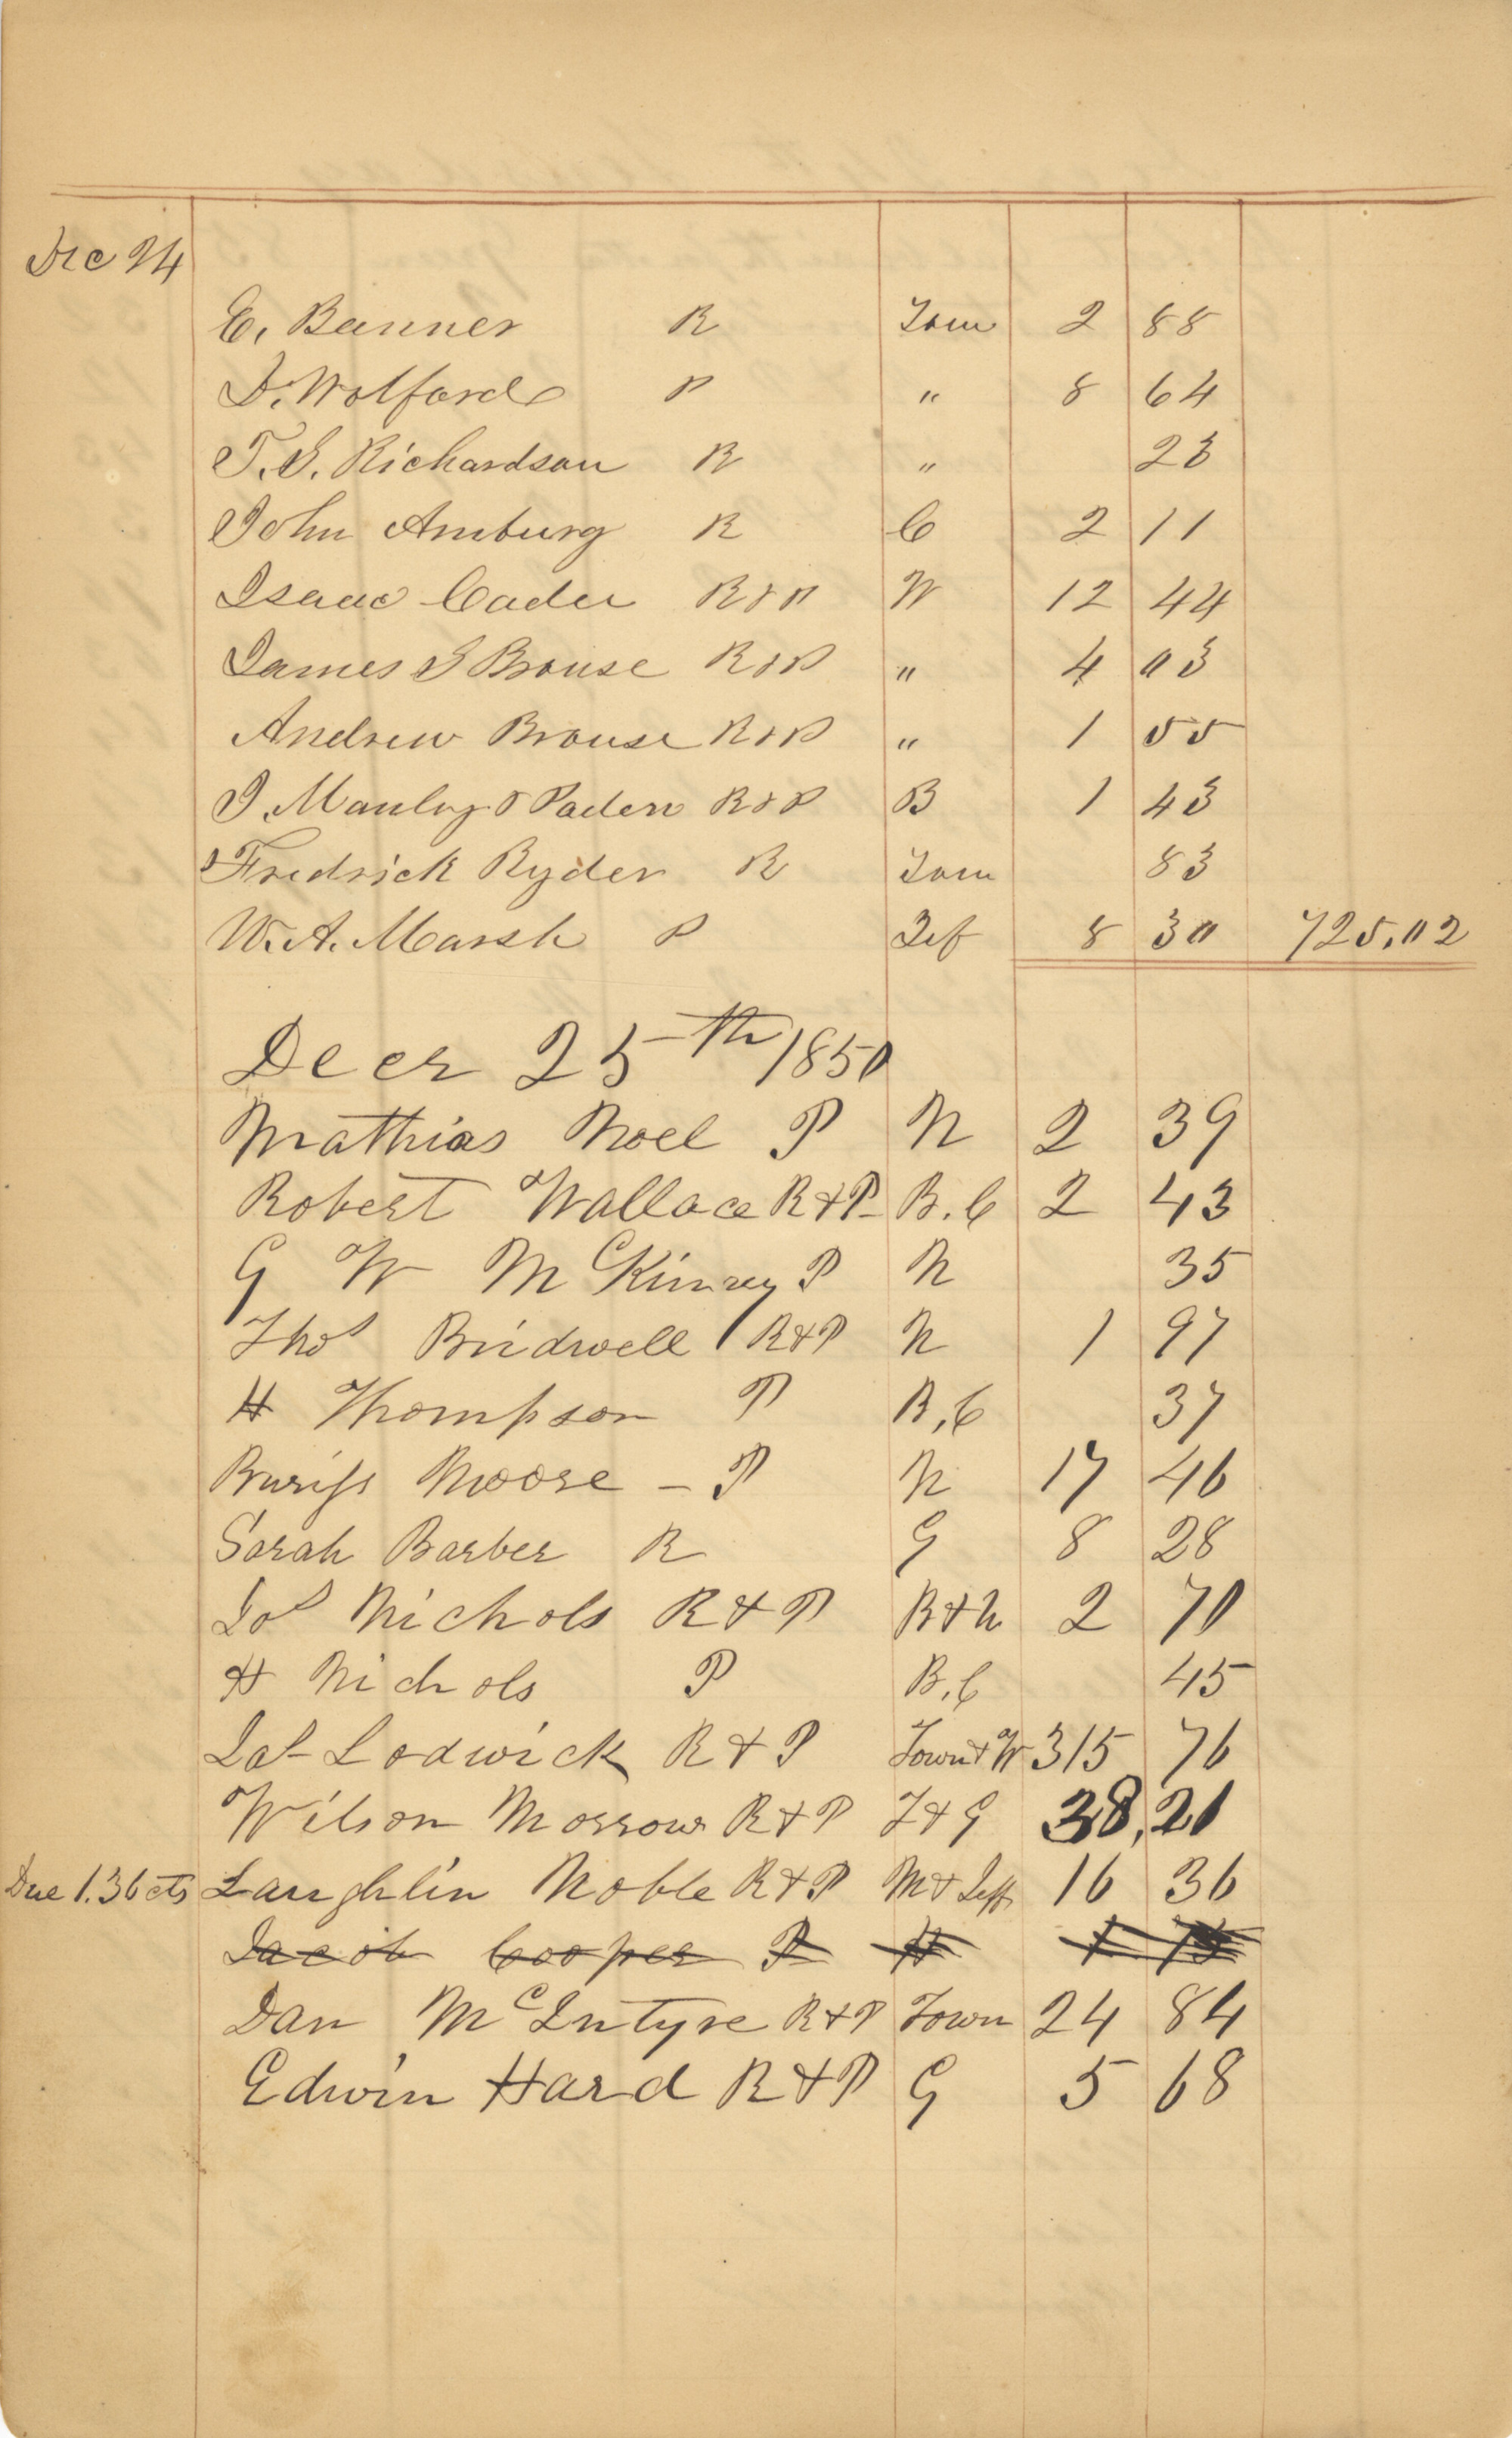 Dec 24
E. Banner R Tow 2 88
D. Wolford P " 8 64
T. S. Richardson R " 23
John Amburg R C 2 11
Isaac Cader R & P W 12 44
James S Brouse R & P " 4 03
Andrew Brouse R & P " 1 55
J. Manley & Paden R & P B 1 43
Fredrick Ryder R Tow 83
W. A. Marsh P Jef 8 30 725.02
Decr 25th 1850
Mathias Noel P N 2 39
Robert Wallace R & P B. C 2 43
G W McKinney P N 35
Thos Bridwell R & P N 1 97
H Thompson P B. C 37
Buriss Moore – P N 17 46
Sarah Barber R G 8 28
Jos Nichols R & P B & N 2 70
H Nichols P B. C 45
Jas Lodwick R & P Town & W 315 76
Wilson Morrow R & P J & G 38,21
Due 1.36 cts Laughlin Noble R & P M & Jeff 16 36
Jacob Cooper P H 1
Dan McIntyre R & P Town 24 84
Edwin Hard R & P G 5 68